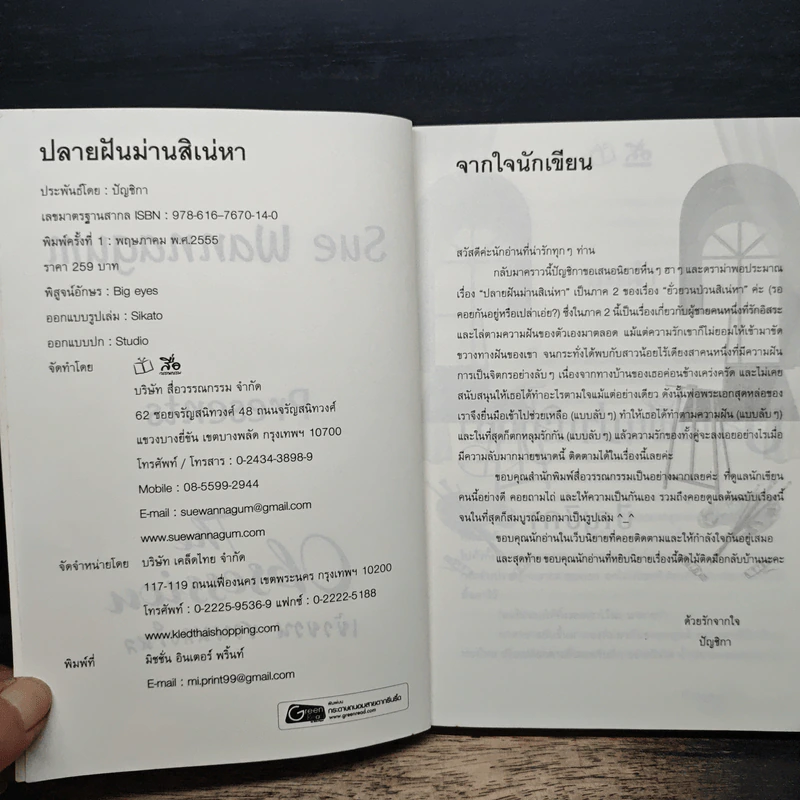 ปลายฝันม่านสิเน่หา
ประพันธ์โดย : ปัญชิกา
เลขมาตรฐานสากล ISBN : 978-616-7670-14-0
พิมพ์ครั้งที่ 1 : พฤษภาคม พ.ศ.2555
ราคา 259 บาท
พิสูจน์อักษร : Big eyes
ออกแบบรูปเล่ม : Sikato
ออกแบบปก : Studio
จัดทำโดย สื่อ
บริษัท สื่อวรรณกรรม จำกัด
62 ซอยจรัญสนิทวงศ์ 48 ถนนจรัญสนิทวงศ์
แขวงบางยี่ขัน เขตบางพลัด กรุงเทพฯ 10700
โทรศัพท์ / โทรสาร : 0-2434-3898-9
Mobile : 08-5599-2944
E-mail : suewannagum@gmail.com
www.suewannagum.com
จัดจำหน่ายโดย บริษัท เคล็ดไทย จำกัด
117-119 ถนนเฟื่องนคร เขตพระนคร กรุงเทพฯ 10200
โทรศัพท์ : 0-2225-9536-9 แฟกซ์ : 0-2222-5188
www.kledthaishopping.com
พิมพ์ที่ มิชชั่น อินเตอร์ พริ้นท์
E-mail : mi.print99@gmail.com
Green Read
พิมพ์บน
กระดาษถนอมสายตากรีนรี้ด
www.greenread.com
จากใจนักเขียน
สวัสดีค่ะนักอ่านที่น่ารักทุกๆ ท่าน
กลับมาคราวนี้ปัญชิกาขอเสนอนิยายหื่นๆ ฮาๆ และดราม่าพอประมาณ
เรื่อง "ปลายฝันม่านสิเน่หา" เป็นภาค 2 ของเรื่อง "ยั่วยวนป่วนสิเน่หา" ค่ะ (รอ
คอยกันอยู่หรือเปล่าเอ่ย?) ซึ่งในภาค 2 นี้เป็นเรื่องเกี่ยวกับผู้ชายคนหนึ่งที่รักอิสระ
และไล่ตามความฝันของตัวเองมาตลอด แม้แต่ความรักเขาก็ไม่ยอมให้เข้ามาขัด
ขวางทางฝันของเขา จนกระทั่งได้พบกับสาวน้อยไร้เดียงสาคนหนึ่งที่มีความฝัน
การเป็นจิตกรอย่างลับๆ เนื่องจากทางบ้านของเธอค่อนข้างเคร่งครัด และไม่เคย
สนับสนุนให้เธอได้ทำอะไรตามใจแม้แต่อย่างเดียว ดังนั้นพ่อพระเอกสุดหล่อของ
เราจึงยื่นมือเข้าไปช่วยเหลือ (แบบลับๆ) ทำให้เธอได้ทำตามความฝัน (แบบลับๆ)
และในที่สุดก็ตกหลุมรักกัน (แบบลับๆ) แล้วความรักของทั้งคู่จะลงเอยอย่างไรเมื่อ
มีความลับมากมายขนาดนี้ ติดตามได้ในเรื่องนี้เลยค่ะ
ขอบคุณสำนักพิมพ์สื่อวรรณกรรมเป็นอย่างมากเลยค่ะ ที่ดูแลนักเขียน
คนนี้อย่างดี คอยถามไถ่ และให้ความเป็นกันเอง รวมถึงคอยดูแลต้นฉบับเรื่องนี้
จนในที่สุดก็สมบูรณ์ออกมาเป็นรูปเล่ม ^_^
ขอบคุณนักอ่านในเว็บนิยายที่คอยติดตามและให้กำลังใจกันอยู่เสมอ
และสุดท้าย ขอบคุณนักอ่านที่หยิบนิยายเรื่องนี้ติดไม้ติดมือกลับบ้านนะคะ
ด้วยรักจากใจ
ปัญชิกา